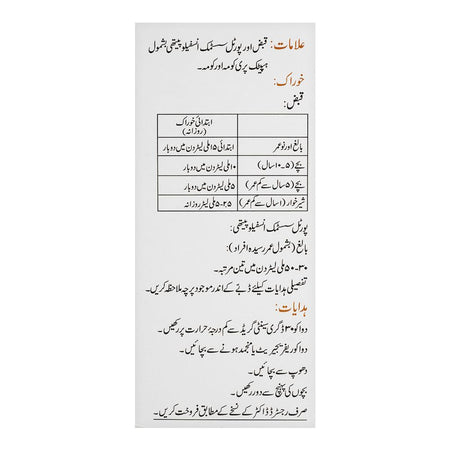 علامات: قبض اور پورٹل سسٹمک انسفیلوپیتھی بشمول
ہیپٹک پری کومہ اور کومہ۔
خوراک:
قبض:
ابتدائی خوراک
(روزانہ)
بالغ اور نوعمر ابتدائی ۱۵ ملی لیٹر دن میں دوبار
بچے (۵-۱۰ سال) ۱۰ ملی لیٹر دن میں دوبار
بچے (۵ سال سے کم عمر) ۵ ملی لیٹر دن میں دوبار
شیر خوار (۱ سال سے کم عمر) ۲۵-۵ ملی لیٹر روزانہ
پورٹل سسٹمک انسفیلوپیتھی:
بالغ (بشمول عمر رسیدہ افراد):
۳۰-۵۰ ملی لیٹر دن میں تین مرتبہ۔
تفصیلی ہدایات کیلئے ڈبے کے اندر موجود پرچہ ملاحظہ کریں۔
ہدایات:
دوا کو ۳۰ ڈگری سینٹی گریڈ سے کم درجۂ حرارت پر رکھیں۔
دوا کو ریفریجریٹ یا منجمد ہونے سے بچائیں۔
دھوپ سے بچائیں۔
بچوں کی پہنچ سے دور رکھیں۔
صرف رجسٹرڈ ڈاکٹر کے نسخے کے مطابق فروخت کریں۔